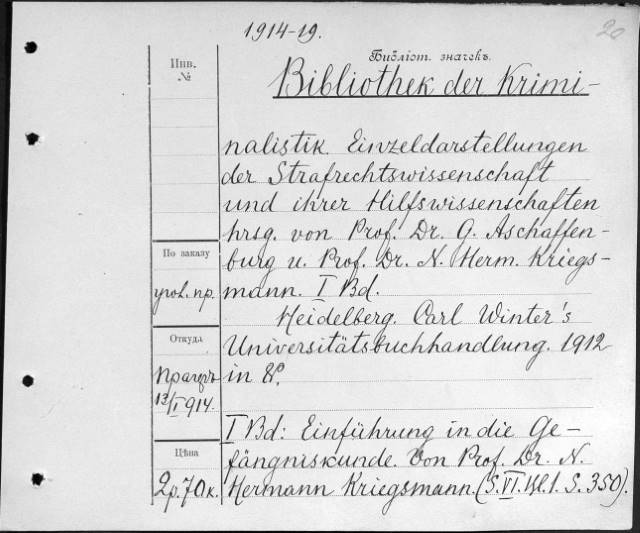 1914-19.
20
Библіот. значекъ.
Инв.
№
Bibliothek der Krimi-
nalistik. Einzeldarstellungen
der Strafrechtswissenschaft
und ihrer Hilfswissenschaften
hrsg. von Prof. Dr. G. Aschaffen-
burg u. Prof. Dr. N. Herm. Kriegs-
mann. I Bd.
Heidelberg. Carl Winter's
Universitätsbuchhandlung. 1912
in 8º.
I Bd: Einführung in die Ge-
fängniskunde. Von Prof. Dr. N.
Hermann Kriegsmann. (S. VI. Bl. 1. S. 350).
По заказу
пр.
Откуда
13/I 914.
Цѣна
2 р. 70 к.